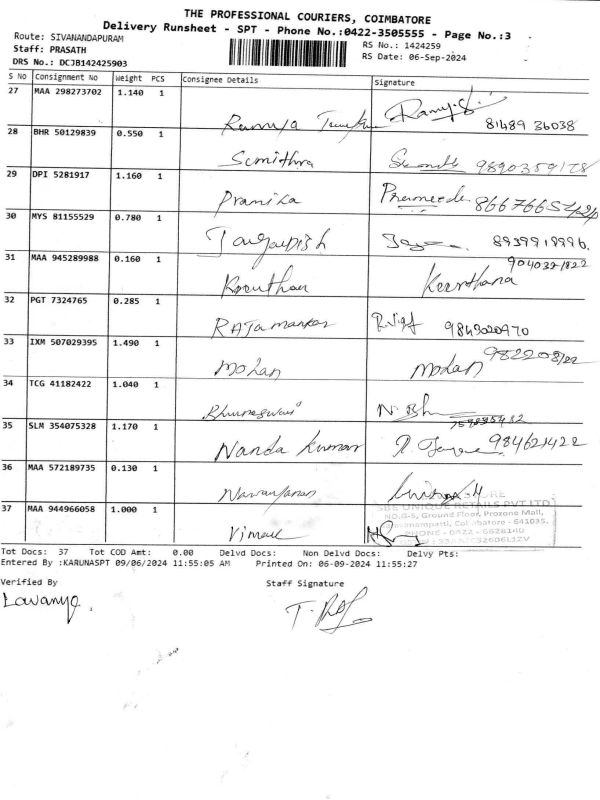 THE PROFESSIONAL COURIERS, COIMBATORE
Delivery Runsheet - SPT - Phone No.:0422-3505555 - Page No.:3
Route: SIVANANDAPURAM
RS No.: 1424259
Staff: PRASATH
RS Date: 06-Sep-2024
DRS No.: DCJB142425903
S No Consignment No Weight PCS Consignee Details Signature
27 MAA 298273702 1.140 1
Ramya 81489 36038
28 BHR 50129839 0.550 1
Sumithra
29 DPI 5281917 1.160 1
Pramila
30 MYS 81155529 0.780 1
31 MAA 945289988 0.160 1
Keerthana
32 PGT 7324765 0.285 1
9843020970
33 IXM 507029395 1.490 1
Mohan Mohan
34 TCG 41182422 1.040 1
35 SLM 354075328 1.170 1
Nanda Kumar 984621422
36 MAA 572189735 0.130 1
Narayanan
37 MAA 944966058 1.000 1
SBE UNIQUE RETAILS PVT LTD
NO.G-5, Ground Floor, Prozone Mall,
Coimbatore - 641035.
Vimal
Tot Docs: 37 Tot COD Amt: 0.00 Delvd Docs: Non Delvd Docs: Delvy Pts:
Entered By :KARUNASPT 09/06/2024 11:55:05 AM Printed On: 06-09-2024 11:55:27
Verified By Staff Signature
Lavanya